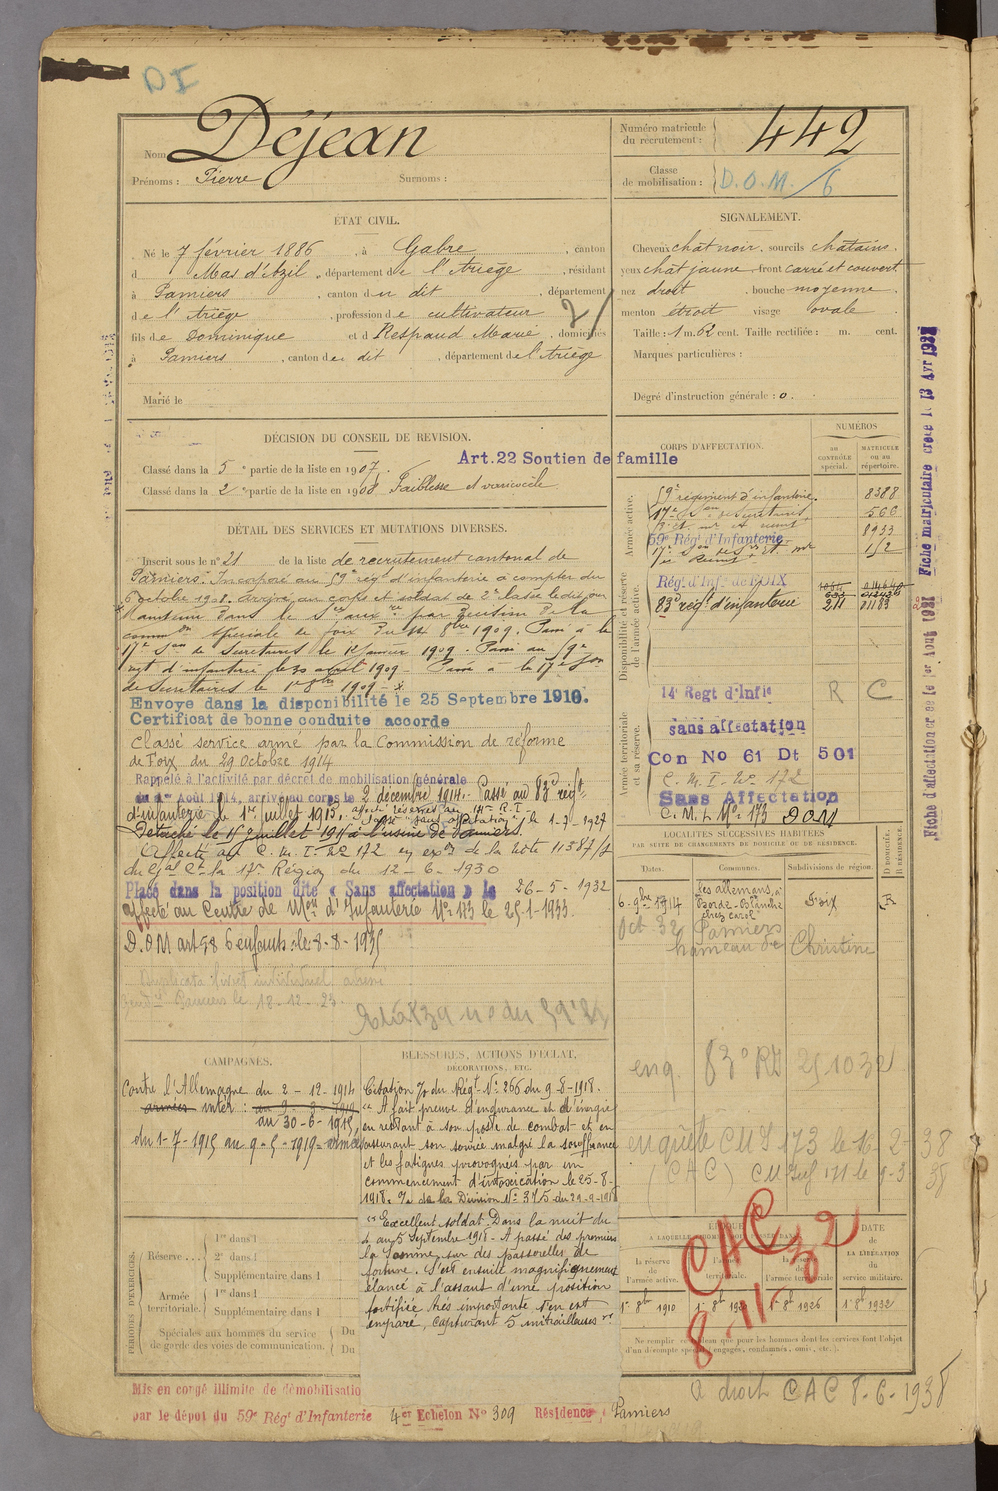 DI
Nom Déjean
Prénoms : Pierre Surnoms :
Numéro matricule du recrutement : 442
Classe de mobilisation : D.O.M. / 6
ÉTAT CIVIL.
Né le 7 février 1886, à Gabre, canton
d Mas d'Azil, département de l'Ariège, résidant
à Pamiers, canton du dit, département
de l'Ariège, profession de cultivateur
fils de Dominique et d Respaud Marie, domiciliés
à Pamiers, canton du dit, département de l'Ariège
Marié le
SIGNALEMENT.
Cheveux chat noir, sourcils chatains.
yeux chat jaune front carré et couvert
nez droit, bouche moyenne
menton étroit visage ovale
Taille : 1 m. 62 cent. Taille rectifiée : m. cent.
Marques particulières :
Degré d'instruction générale : 0.
DÉCISION DU CONSEIL DE REVISION.
Classé dans la 5e partie de la liste en 1907. Art. 22 Soutien de famille
Classé dans la 2e partie de la liste en 1908 Faiblesse et varicocèle
DÉTAIL DES SERVICES ET MUTATIONS DIVERSES.
Inscrit sous le n° 21 de la liste de recrutement cantonal de
Pamiers. Incorporé au 59e régt d'infanterie à compter du
6 octobre 1908. Arrivé au corps et soldat de 2e classe le dit jour
Maintenu dans le Sce aux re par décision de la
comm on spéciale de Foix du 8bre 1909. Passé à la
17e Son de Secrétaires le 1er janvier 1909. Passé au 59e
regt d'infanterie le 30 avril 1909 - Passé à la 17e Son
de Secrétaires le 1er 8bre 1909
Envoyé dans la disponibilité le 25 Septembre 1910.
Certificat de bonne conduite accordé
Classé service armé par la Commission de réforme
de Foix du 29 octobre 1914
Rappelé à l'activité par décret de mobilisation générale
du 1er Août 1914, arrivé au corps le 2 décembre 1914. Passé au 83e régt
d'infanterie le 1er juillet 1915.
le 1-7-1927
Détaché le 15 juillet 191 à l'usine de Pamiers.
Affecté au C. M. I. No 172 en exon de la Note 11387/
du Gal Ct la 17e Région du 12-6-1930
Placé dans la position dite « Sans affectation » le 26-5-1932
affecté au Centre de Mon d'Infanterie No 173 le 25-1-1933.
D.O.M art 58 6 enfants : le 8-8-1935
Duplicata livret individuel adressé
gendie Pamiers le 18-12-23.
CORPS D'AFFECTATION.
NUMÉROS
AU CONTRÔLE spécial.
MATRICULE ou au répertoire.
Armée active.
59e régiment d'infanterie. 8388
17e Son de Secrétaires 560
8933
59e Régt d'Infanterie
1/2
Disponibilité et réserve de l'armée active.
Régt d'Infie de FOIX
83e régt d'infanterie 211 01183
Armée territoriale et sa réserve.
14e Regt d'Infie R C
sans affectation
Con No 61 Dt 501
C. M. I. No 172
Sans Affectation
C. M. I. No 173 DOM
LOCALITÉS SUCCESSIVES HABITÉES
PAR SUITE DE CHANGEMENTS DE DOMICILE OU DE RÉSIDENCE.
Dates. Communes. Subdivisions de région. D DOMICILE. R RÉSIDENCE.
6-9bre 1914 les allemans, à Borde-Blanche chez Carol Foix R
Oct. 32 Pamiers
hameau de Christine
enq. 83e RI 251032
enquête CMI 173 le 16-2-38
(CAC) CM Inf 171 le 9-3 38
CAMPAGNES.
Contre l'Allemagne du 2-12-1914
armées inter : au 9-8-1919
au 30-6-1915,
du 1-7-1915 au 9-5-1919 = armées
BLESSURES, ACTIONS D'ÉCLAT,
DÉCORATIONS, ETC.
Citation /o du Régt No 266 du 9-8-1918.
"A fait preuve d'endurance et d'énergie
en restant à son poste de combat et en
assurant son service malgré la souffrance
et les fatigues provoquées par un
commencement d'intoxication le 25-8-
1918. /o de la Division No 375 du 29-9-1918
"Excellent soldat. Dans la nuit du
4 au 5 Septembre 1918 - A passé des premiers
la Somme sur des passerelles de
fortune. S'est ensuite magnifiquement
élancé à l'assaut d'une position
fortifiée très importante s'en est
emparé, capturant 5 mitrailleuses
PÉRIODES D'EXERCICES.
Réserve ... 1re dans l
2e dans l
Supplémentaire dans l
Armée territoriale. 1re dans l
Supplémentaire dans l
Spéciales aux hommes du service de garde des voies de communication. Du
Du
DATE DE LA LIBÉRATION du service militaire.
la réserve de l'armée active.
1er 8bre 1910 1er 8bre 1920 1er 8bre 1926 1er 8bre 1932
CAC 32
8-11
Ne remplir ce tableau que pour les hommes dont les services font l'objet
Mis en congé illimité de démobilisation
par le dépôt du 59e Régt d'Infanterie 4er Echelon No 309 Résidence, Pamiers
a droit CAC 8-6-1938
Fiche matriculaire créée le 13 Avr 1931
Fiche d'affectation créée le 1er Août 1931